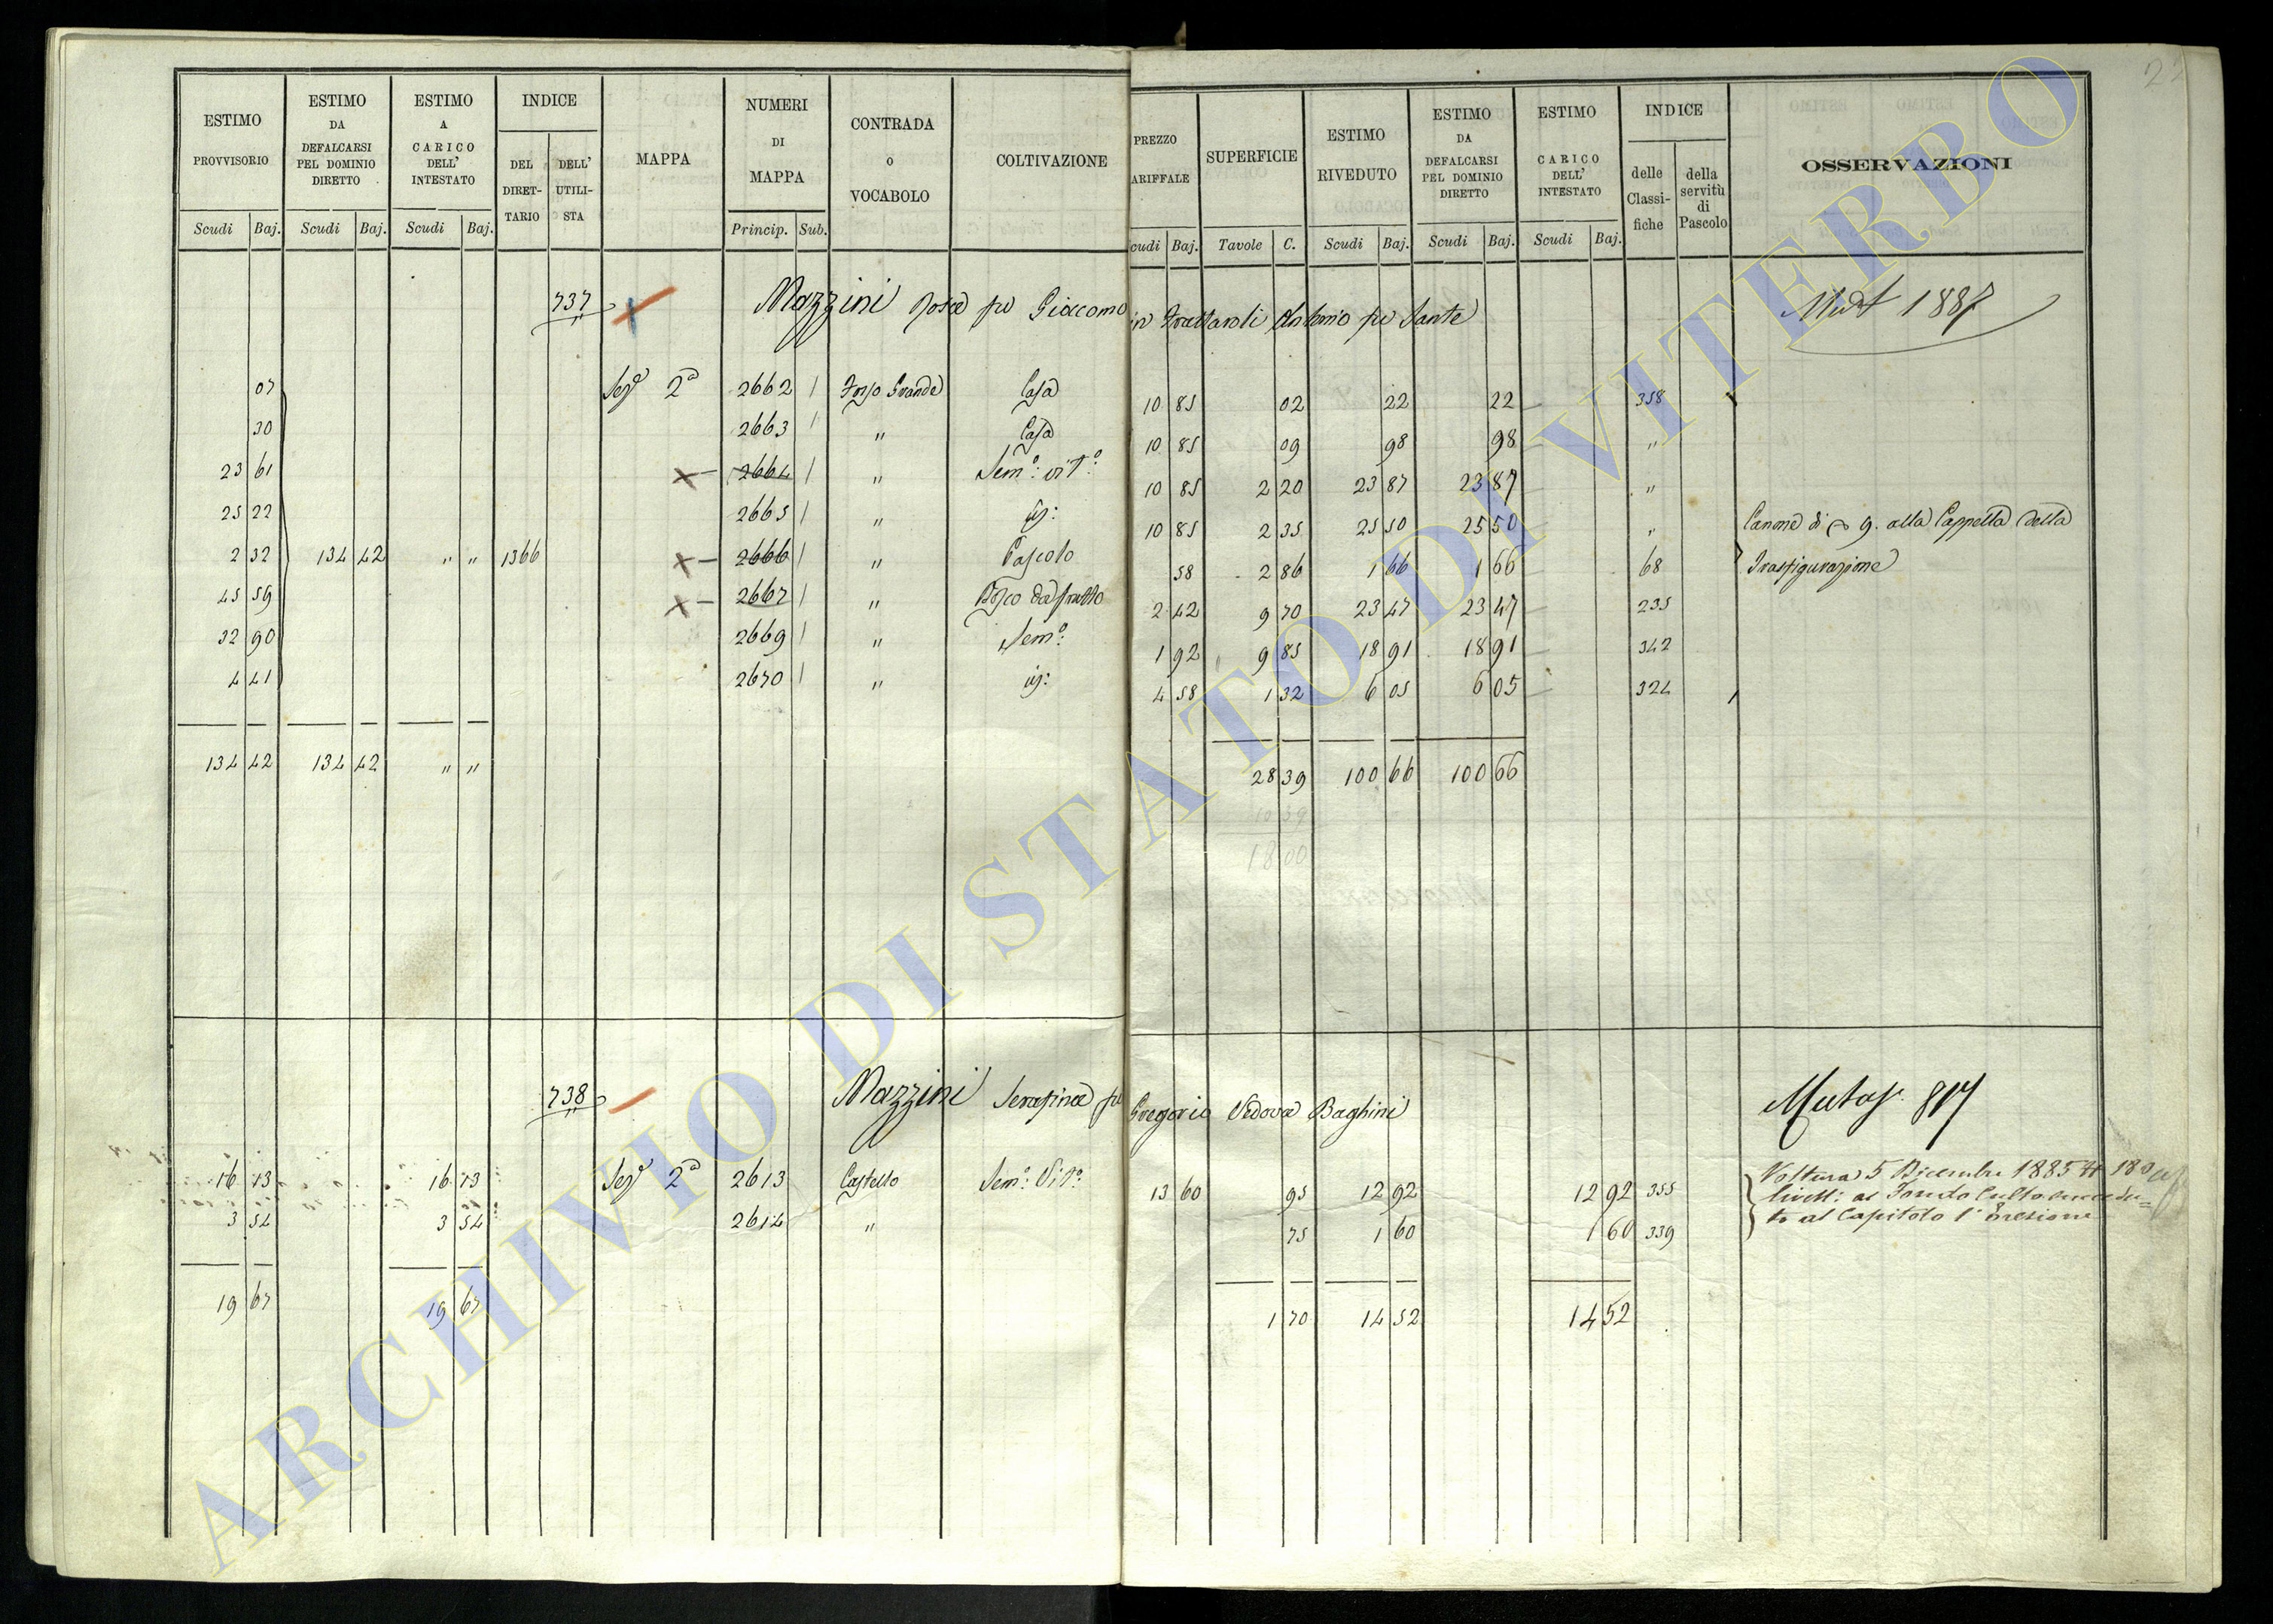 ESTIMO PROVVISORIO Scudi Baj. ESTIMO DA DEFALCARSI PEL DOMINIO DIRETTO Scudi Baj. ESTIMO A CARICO DELL' INTESTATO Scudi Baj. INDICE DEL DIRETTARIO DELL' UTILISTA MAPPA NUMERI DI MAPPA Princip. Sub. CONTRADA O VOCABOLO COLTIVAZIONE PREZZO ARIFFALE cudi Baj. SUPERFICIE Tavole C. ESTIMO RIVEDUTO Scudi Baj. ESTIMO DA DEFALCARSI PEL DOMINIO DIRETTO Scudi Baj. ESTIMO CARICO DELL' INTESTATO Scudi Baj. INDICE delle Classifiche della servitù di Pascolo OSSERVAZIONI
737 Mazzini Rosa fu Giacomo in Frattaroli Antonio fu Sante Mut 1887
07 Sezˢ 2ª 2662 1 Fosso Grande Casa 10 85 02 22 22 358
30 2663 1 " Casa 10 85 09 98 98 "
23 61 x 2664 1 " Semº: vitº: 10 85 2 20 23 87 23 87 "
25 22 2665 1 " id: 10 85 2 35 25 50 25 50 " Canone di 9. alla Cappella della
2 32 134 42 " " 1366 x 2666 1 " Pascolo 58 2 86 1 66 1 66 68 Trasfigurazione
45 59 x 2667 1 " Bosco da frutto 2 42 9 70 23 47 23 47 235
32 90 2669 1 " Semº: 1 92 9 85 18 91 18 91 342
4 41 2670 1 " id: 4 58 1 32 6 05 6 05 324
134 42 134 42 " " 28 39 100 66 100 66
10 39
18 00
738 Mazzini Serafina fu Gregorio Vedova Baghini Mutaz. 87
16 13 16 13 Sezˢ 2ª 2613 Castello Semº: Vitº: 13 60 95 12 92 12 92 355 Voltura 5 Dicembre 1885
3 54 3 54 2614 " 75 1 60 1 60 339 livell: al Fondo Culto
to al Capitolo
19 67 19 67 1 70 14 52 14 52
ARCHIVIO DI STATO DI VITERBO